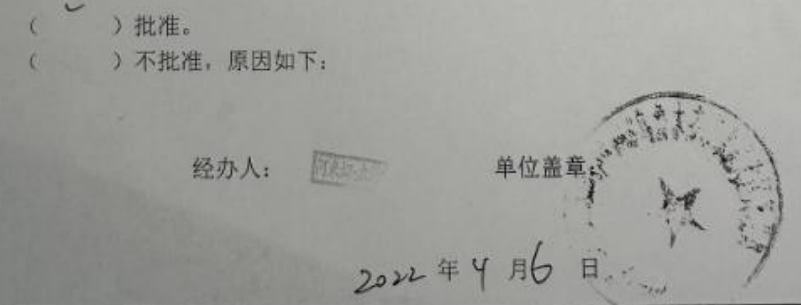 （ ✓ ）批准。
（ ）不批准，原因如下：
经办人： 单位盖章：
2022 年 4 月 6 日